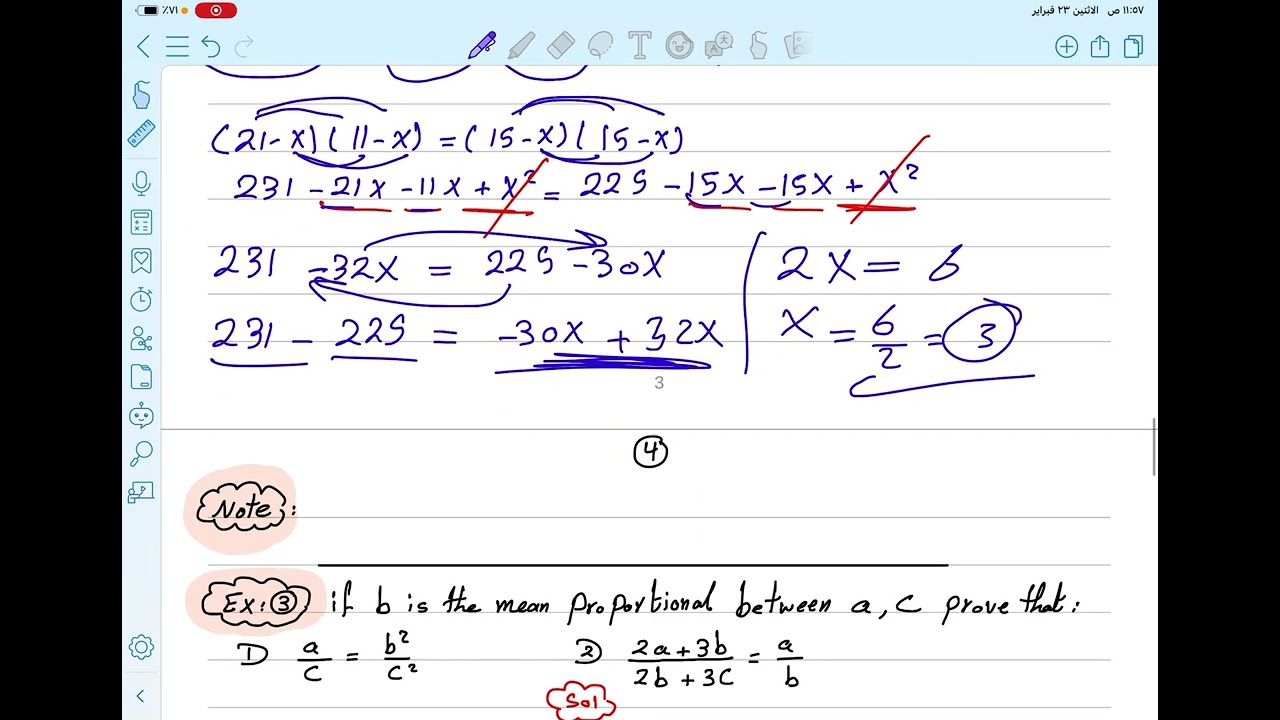 ٪٧١ ١١:٥٧ ص الاثنين ٢٣ فبراير
(21-x)(11-x) = (15-x)(15-x)
231 -21x -11x + x² = 225 -15x -15x + x²
231 -32x = 225 -30x
231 - 225 = -30x + 32x
2x = 6
x = 6/2 = 3
3
4
Note:
Ex: 3 if b is the mean proportional between a, c prove that:
1) a/c = b²/c² 2) 2a+3b/2b+3c = a/b
Sol